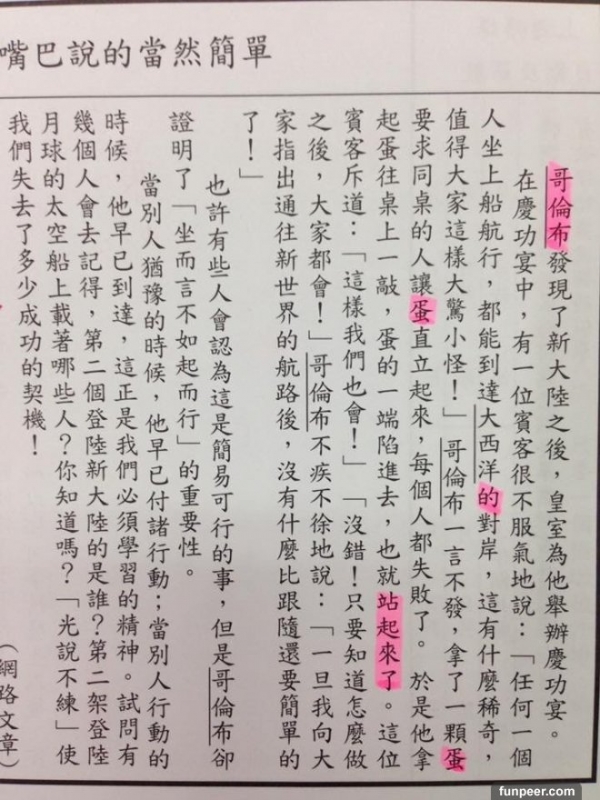 嘴巴說的當然簡單
哥倫布發現了新大陸之後，皇室為他舉辦慶功宴。
在慶功宴中，有一位賓客很不服氣地說：「任何一個
人坐上船航行，都能到達大西洋的對岸，這有什麼稀奇，
值得大家這樣大驚小怪！」哥倫布一言不發，拿了一顆蛋
要求同桌的人讓蛋直立起來，每個人都失敗了。於是他拿
起蛋往桌上一敲，蛋的一端陷進去，也就站起來了。這位
賓客斥道：「這樣我們也會！」「沒錯！只要知道怎麼做
之後，大家都會！」哥倫布不疾不徐地說：「一旦我向大
家指出通往新世界的航路後，沒有什麼比跟隨還要簡單的
了！」
也許有些人會認為這是簡易可行的事，但是哥倫布卻
證明了「坐而言不如起而行」的重要性。
當別人猶豫的時候，他早已付諸行動；當別人行動的
時候，他早已到達，這正是我們必須學習的精神。試問有
幾個人會去記得，第二個登陸新大陸的是誰？第二架登陸
月球的太空船上載著哪些人？你知道嗎？「光說不練」使
我們失去了多少成功的契機！
（網路文章）
funpeer.com